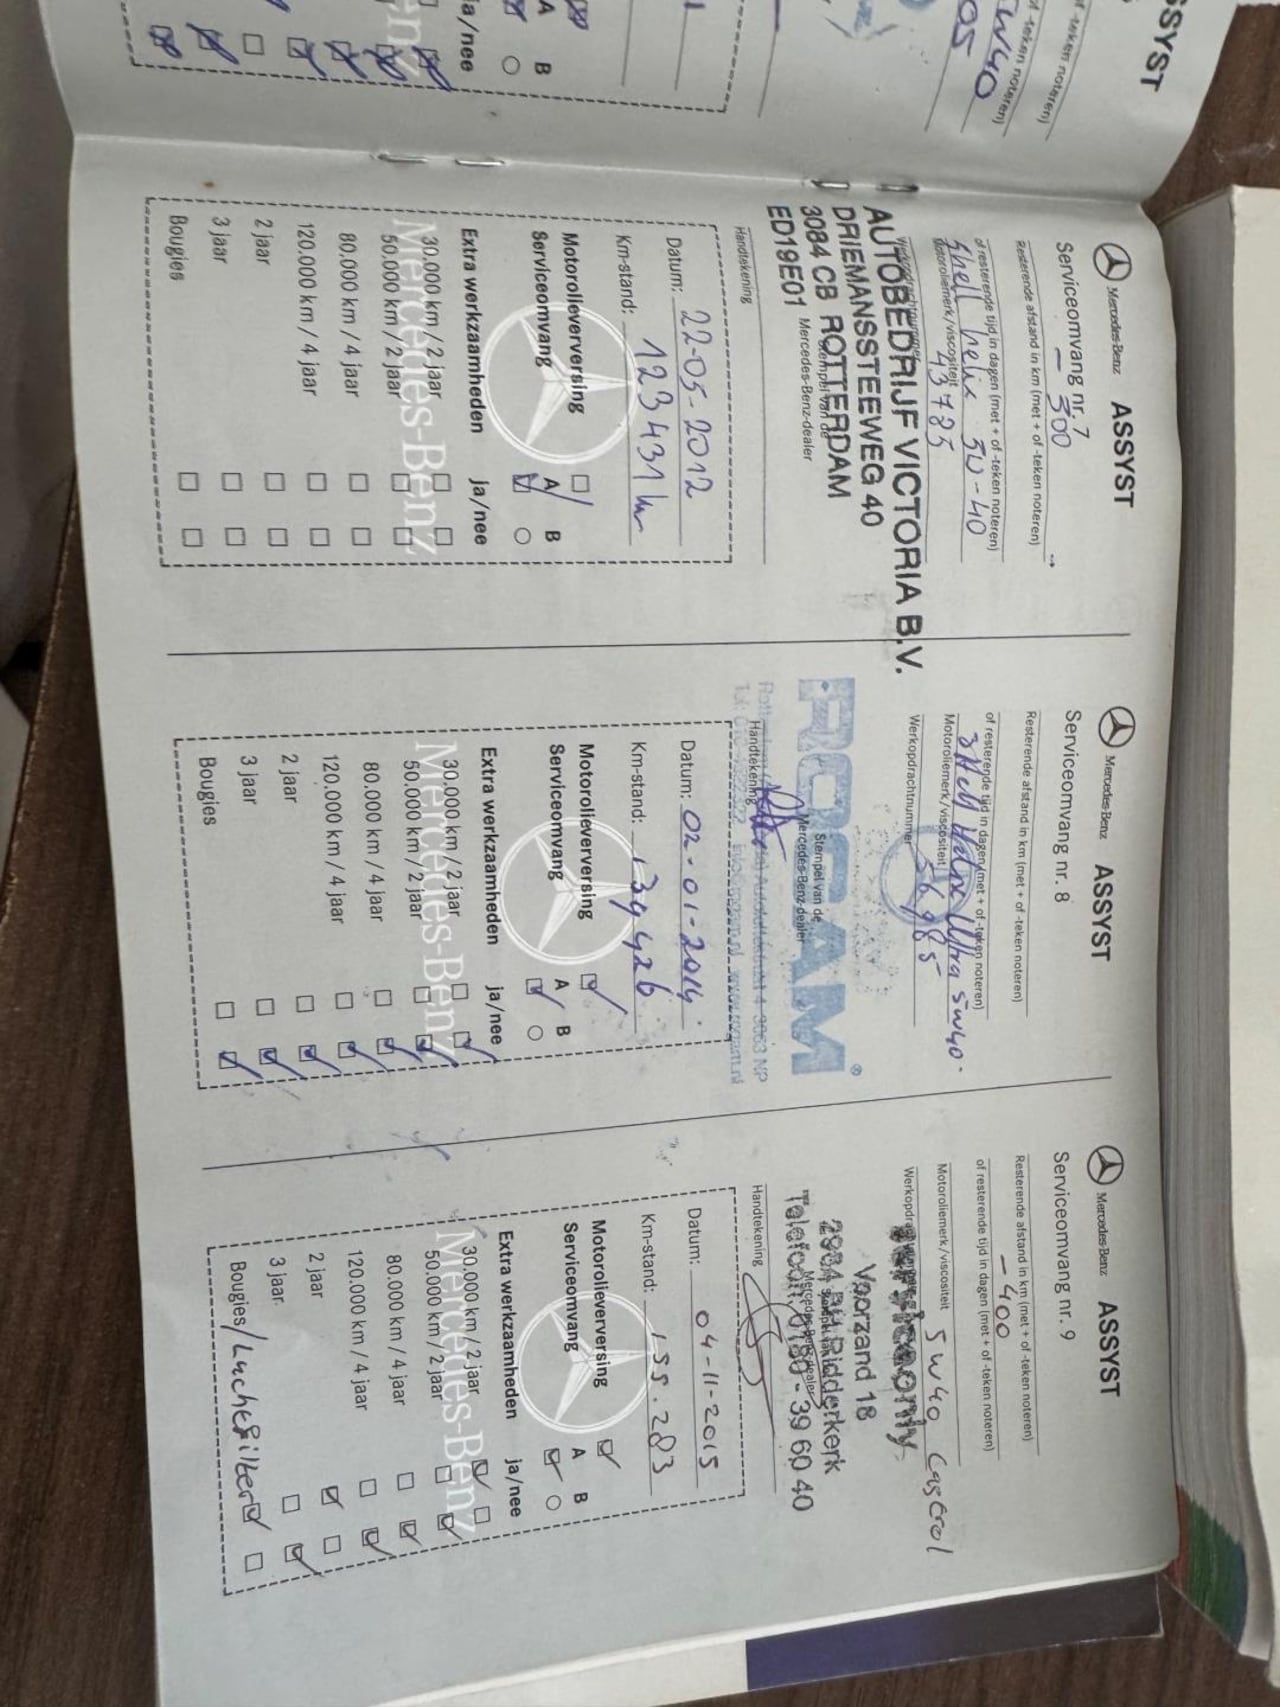 ASSYST
5W40
05
ja/nee
A B
Mercedes-Benz ASSYST
Serviceomvang nr. 7
- 300
Resterende afstand in km (met + of -teken noteren)
of resterende tijd in dagen (met + of -teken noteren)
Shell helix 50-40
Motoroliemerk/viscositeit
43785
Werkopdrachtnummer
AUTOBEDRIJF VICTORIA B.V.
DRIEMANSSTEEWEG 40
3084 CB ROTTERDAM
ED19E01
Stempel van de
Mercedes-Benz-dealer
Handtekening
Datum: 22-05-2012
Km-stand: 123431 km
Motorolieverversing
Serviceomvang A B
Extra werkzaamheden ja/nee
30.000 km / 2 jaar
50.000 km / 2 jaar
80.000 km / 4 jaar
120.000 km / 4 jaar
2 jaar
3 jaar
Bougies
Mercedes-Benz
Mercedes-Benz ASSYST
Serviceomvang nr. 8
Resterende afstand in km (met + of -teken noteren)
of resterende tijd in dagen (met + of -teken noteren)
Shell Helix Ultra 5W40.
Motoroliemerk/viscositeit
56985
Werkopdrachtnummer
ROGAM®
Stempel van de
Mercedes-Benz-dealer
4, 3063 NP
Handtekening
Datum: 02-01-2014.
Km-stand: 139426
Motorolieverversing
Serviceomvang A B
Extra werkzaamheden ja/nee
30.000 km / 2 jaar
50.000 km / 2 jaar
80.000 km / 4 jaar
120.000 km / 4 jaar
2 jaar
3 jaar
Bougies
Mercedes-Benz
Mercedes-Benz ASSYST
Serviceomvang nr. 9
Resterende afstand in km (met + of -teken noteren)
- 400
of resterende tijd in dagen (met + of -teken noteren)
5W40 Castrol
Motoroliemerk/viscositeit
Voorzand 18
Ridderkerk
Telefoon 0180 - 39 60 40
Handtekening
Datum: 04-11-2015
Km-stand: 155.283
Motorolieverversing
Serviceomvang A B
Extra werkzaamheden ja/nee
30.000 km / 2 jaar
50.000 km / 2 jaar
80.000 km / 4 jaar
120.000 km / 4 jaar
2 jaar
3 jaar
Bougies / Luchtfilter
Mercedes-Benz